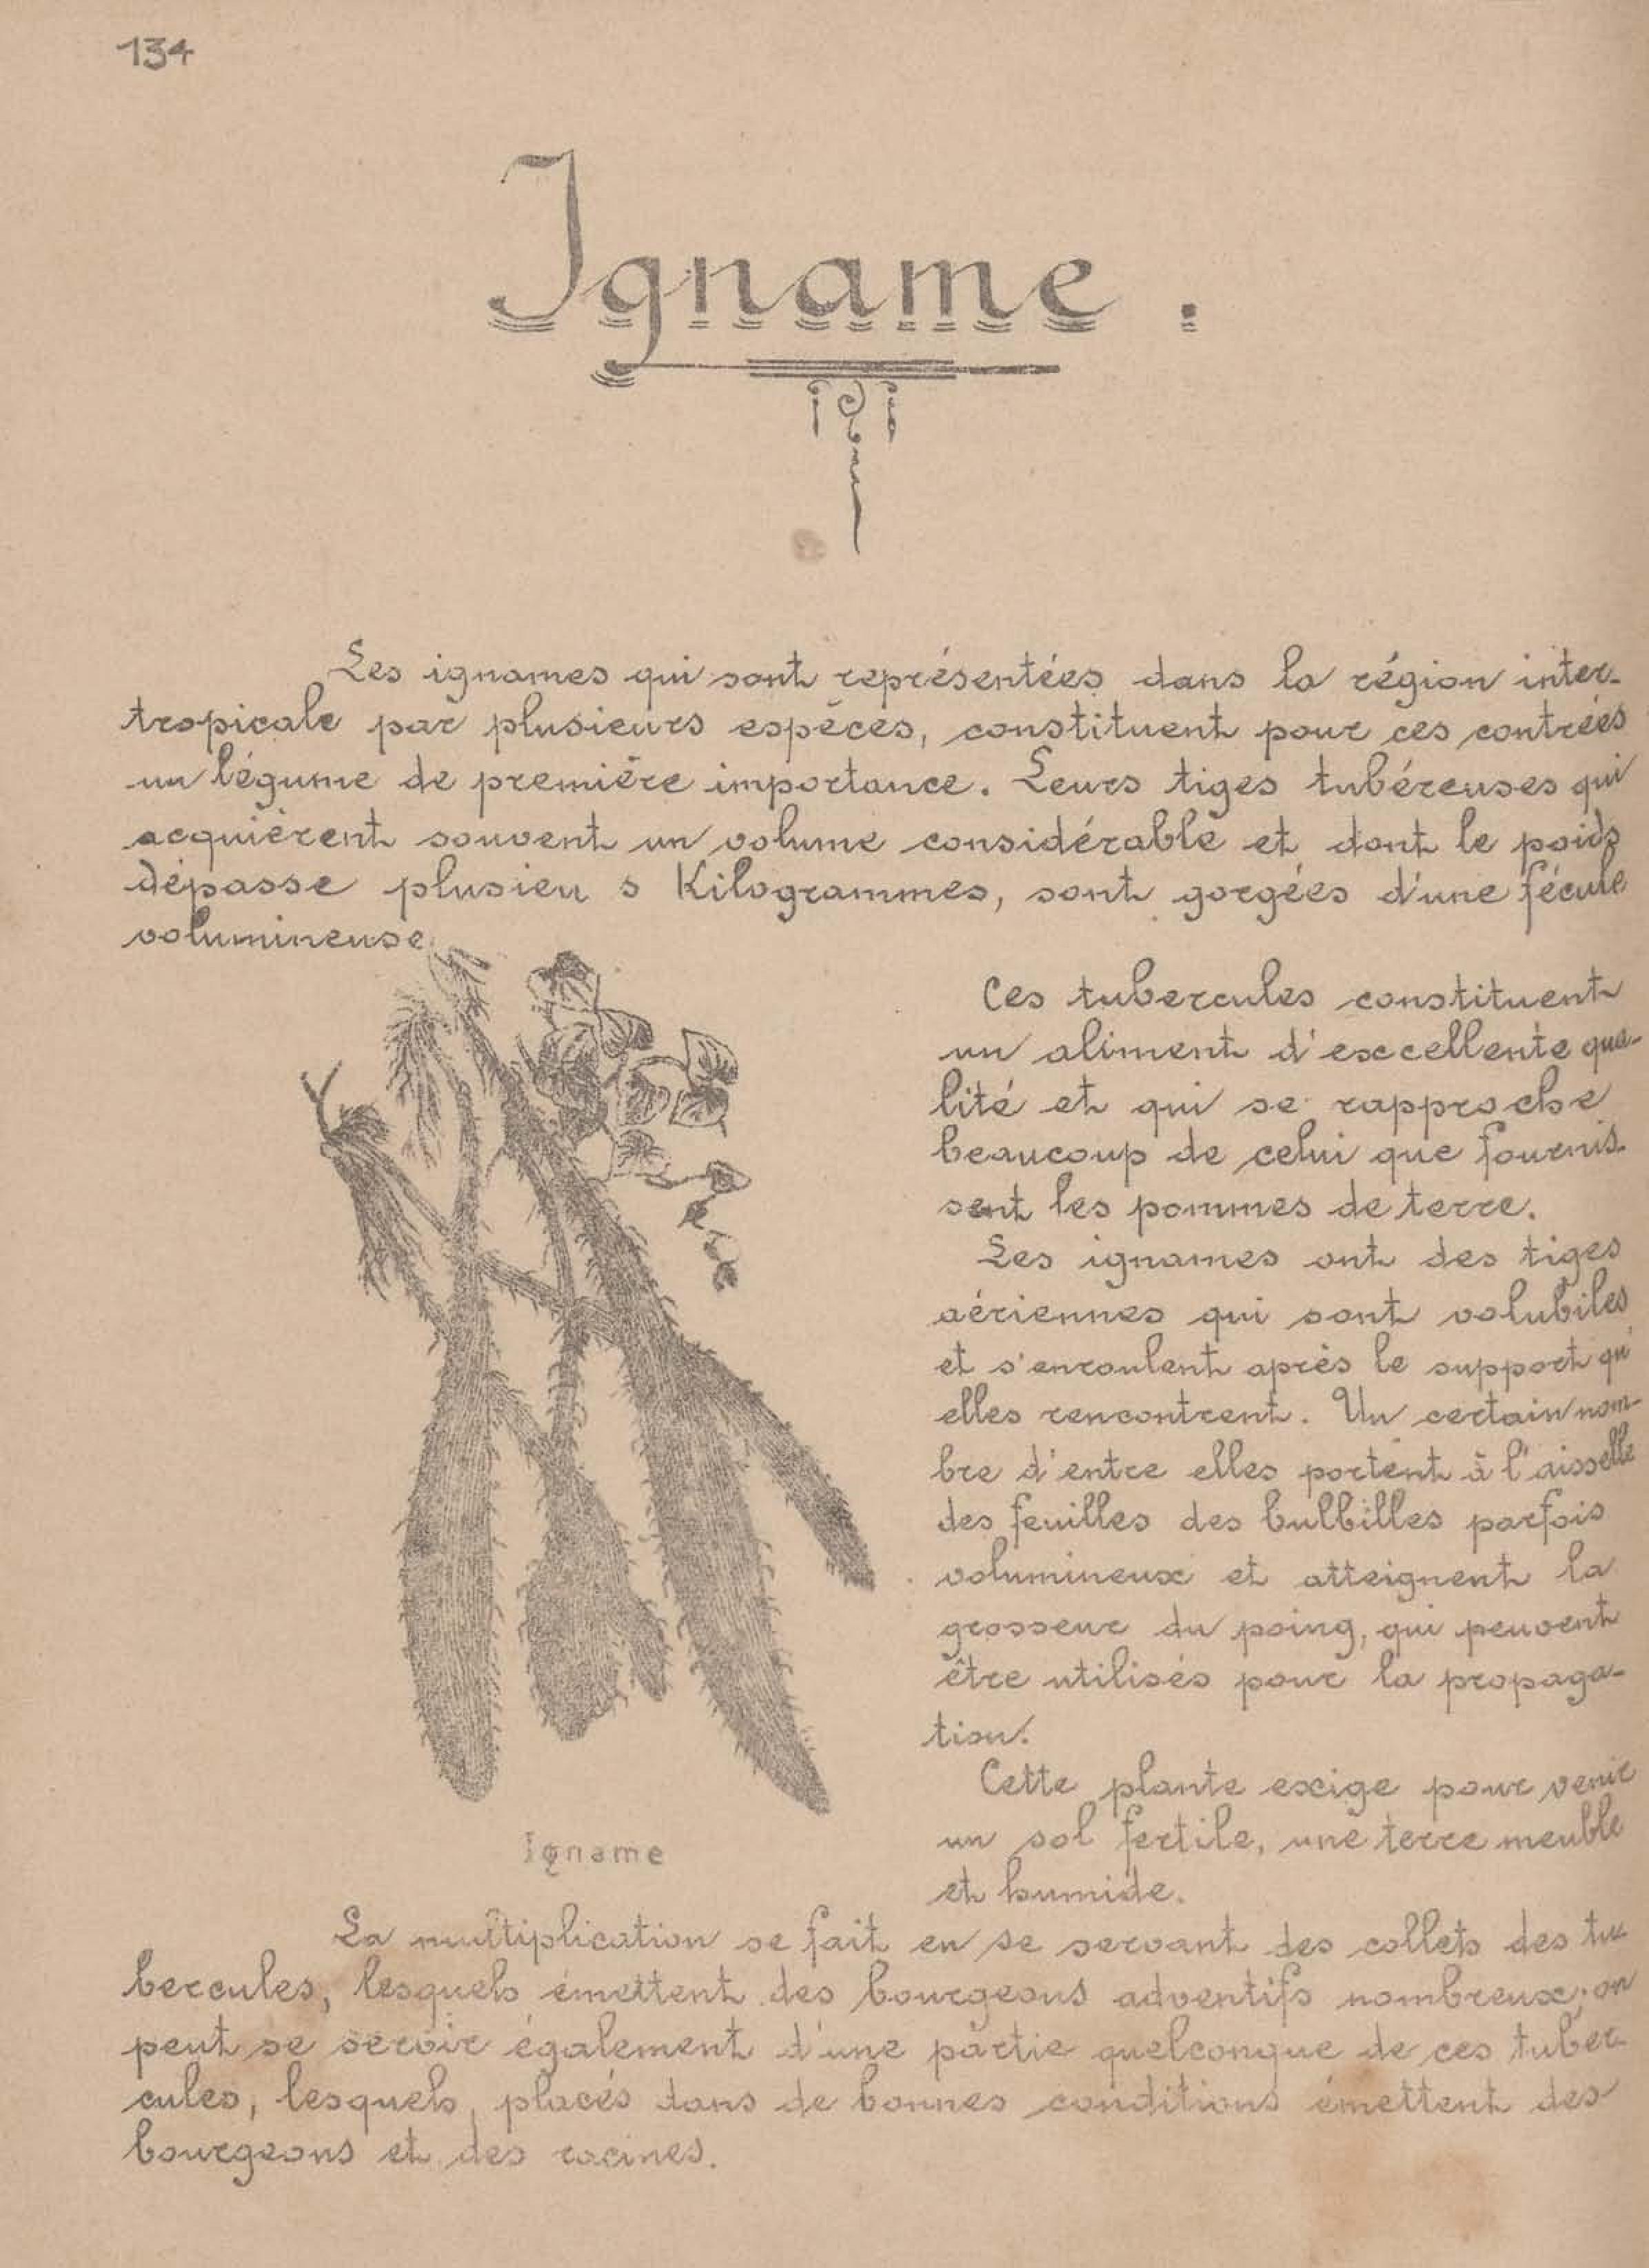 134
Igname.
Les ignames qui sont représentées dans la région inter-
tropicale par plusieurs espèces, constituent pour ces contrées
un légume de première importance. Leurs tiges tubéreuses qui
acquièrent souvent un volume considérable et dont le poids
dépasse plusieu s Kilogrammes, sont gorgées d'une fécule
volumineuse.
Ces tubercules constituent
un aliment d'excellente qua-
lité et qui se rapproche
beaucoup de celui que fournis-
sent les pommes de terre.
Les ignames ont des tiges
aériennes qui sont volubiles
et s'enroulent après le support qu'
elles rencontrent. Un certain nom-
bre d'entre elles portent à l'aisselle
des feuilles des bulbilles parfois
volumineux et atteignent la
grosseur du poing, qui peuvent
être utilisés pour la propaga-
tion.
Cette plante exige pour venir
un sol fertile, une terre meuble
et humide.
Igname
La multiplication se fait en se servant des collets des tu-
bercules, lesquels émettent des bourgeons adventifs nombreux; on
peut se servir également d'une partie quelconque de ces tuber-
cules, lesquels, placés dans de bonnes conditions émettent des
bourgeons et des racines.